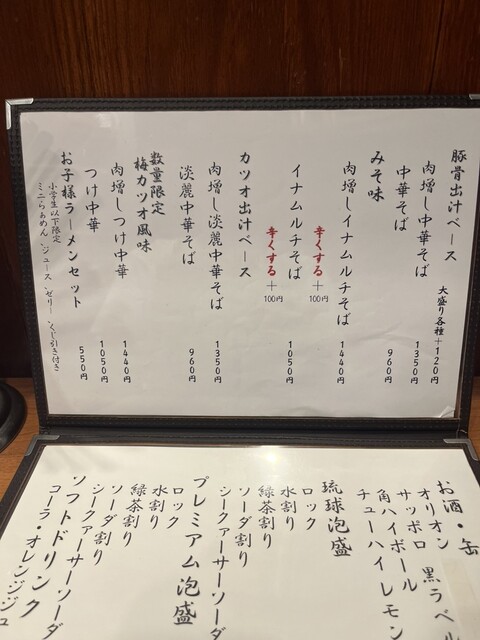 豚骨出汁ベース
大盛り各種+120円
肉増し中華そば 1350円
中華そば 960円
みそ味
肉増しイナムルチそば 1440円
辛くする+100円
イナムルチそば 1050円
辛くする+100円
カツオ出汁ベース
肉増し淡麗中華そば 1350円
淡麗中華そば 960円
数量限定
梅カツオ風味
肉増しつけ中華 1440円
つけ中華 1050円
お子様ラーメンセット 550円
小学生以下限定
ミニらぁめん・ジュース・ゼリー・くじ引き付き
お酒・缶
オリオン
サッポロ 黒ラベル
角ハイボール
チューハイレモン
琉球泡盛
ロック
水割り
緑茶割り
ソーダ割り
シークァーサーソーダ
プレミアム泡盛
ロック
水割り
緑茶割り
ソーダ割り
シークァーサーソーダ
ソフトドリンク
コーラ・オレンジジュ